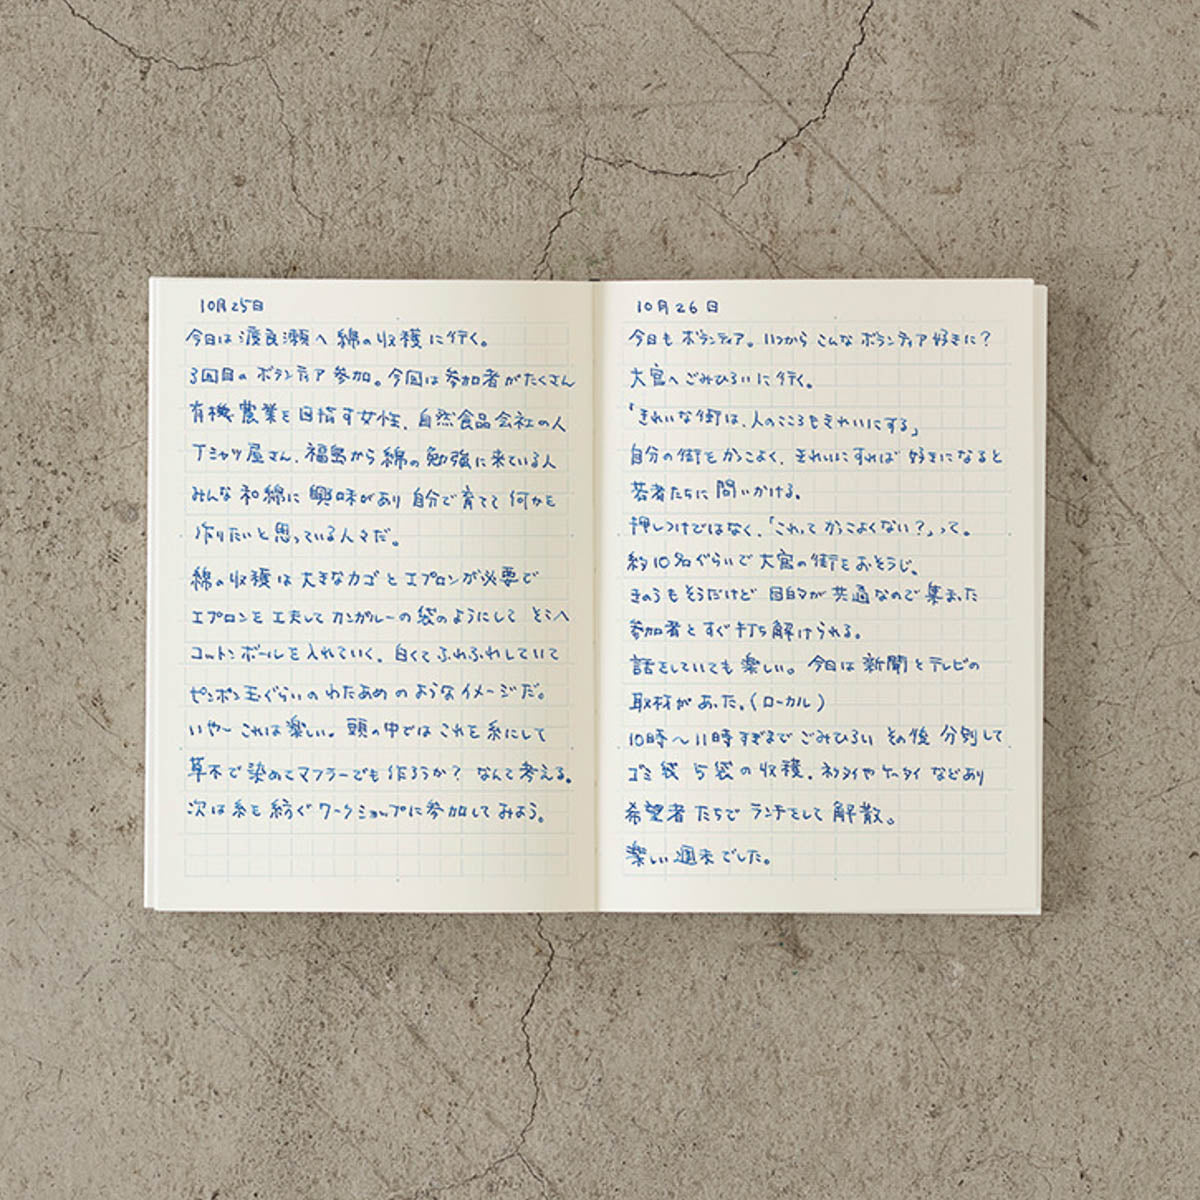 10月25日
今日は渡良瀬へ綿の収穫に行く。
3回目のボランティア参加。今回は参加者がたくさん
有機農業を目指す女性、自然食品会社の人
Tシャツ屋さん、福島から綿の勉強に来ている人
みんな和綿に興味があり自分で育てて何かを
作りたいと思っている人々だ。
綿の収穫は大きなカゴとエプロンが必要で
エプロンを工夫してカンガルーの袋のようにしてそこへ
コットンボールを入れていく、白くてふわふわしていて
ピンポン玉ぐらいのわたあめのようなイメージだ。
いや〜これは楽しい。頭の中ではこれを糸にして
草木で染めてマフラーでも作ろうか？なんて考える。
次は糸を紡ぐワークショップに参加してみよう。
10月26日
今日もボランティア。いつからこんなボランティア好きに？
大宮へごみひろいに行く。
「きれいな街は、人のこころもきれいにする」
自分の街をかっこよく、きれいにすれば好きになると
若者たちに問いかける。
押しつけではなく、「これってかっこよくない？」って。
約10名ぐらいで大宮の街をおそうじ。
きのうもそうだけど目的が共通なので集まった
参加者とすぐ打ち解けられる。
話をしていても楽しい。今日は新聞とテレビの
取材があった。(ローカル)
10時〜11時すぎまでごみひろいその後分別して
ゴミ袋5袋の収穫、ネクタイやケータイなどあり
希望者たちでランチをして解散。
楽しい週末でした。